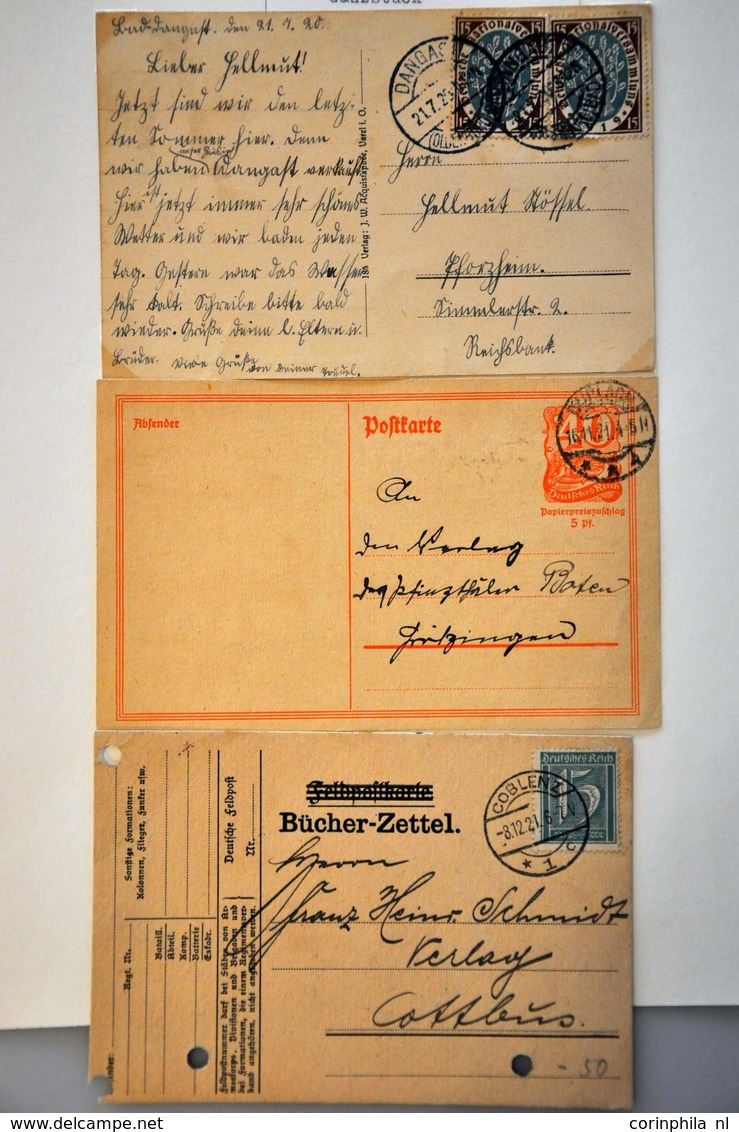 Ganzstück
Bad-Dangast. den 21.7.20.
Lieber Hellmut!
Jetzt sind wir den letz-
ten Sommer hier. Denn
wir haben Dangast verkauft
Hier ist jetzt immer sehr schönes
Wetter und wir baden jeden
Tag. Gestern war das Wasser
sehr kalt. Schreibe bitte bald
wieder. Grüße deine l. Eltern u.
Brüder. Viele Grüße von deiner Trudel.
184 Verlag: J. W. Acquistapace, Varel i. O.
Deutsche Nationalversammlung
15 15
1919
DANGAST
21.7.20
(OLDENBURG)
Herrn
Hellmut Stössel.
Pforzheim.
Simmlerstr. 2.
Reichsbank.
Absender
Postkarte
40
Deutsches Reich
Papierpreiszuschlag
5 Pf.
16.11.21. 4-5 N
An
den Verlag
des Pfinzthäler Boten
Grötzingen
Feldpostkarte
Bücher-Zettel.
Deutsche Feldpost
Nr.
Sonstige Formationen:
Kolonnen, Flieger, Funker usw.
Regt. Nr.
Bataill.
Abteil.
Komp.
Batterie
Eskadr.
Feldpostnummer darf bei Stäben von Ar-
meekorps, Divisionen und Brigaden und
bei Formationen, die einem Regimentsver-
band angehören, nicht angegeben werden.
Deutsches Reich
15
COBLENZ
-8.12.21. 6-7
* 1
Herrn
Franz Heinr. Schmidt
Verlag
Cottbus.
- 50
corinphila nl